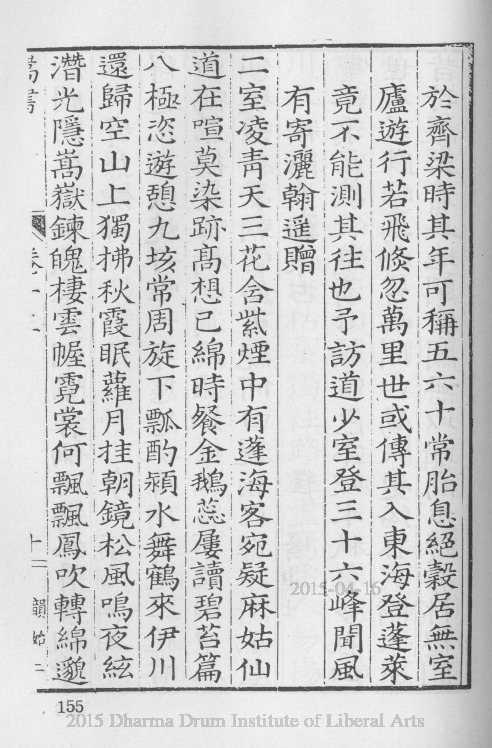 於齊梁時其年可稱五六十常胎息絕穀居無室
廬遊行若飛倐忽萬里世或傳其入東海登蓬萊
竟不能測其往也予訪道少室登三十六峰聞風
有寄灑翰遥贈
二室凌青天三花含紫煙中有蓬海客宛疑麻姑仙
道在喧莫染跡高想已綿時餐金鵝蕊屢讀碧苔篇
八極恣遊憩九垓常周旋下瓢酌潁水舞鶴來伊川
還歸空山上獨拂秋霞眠蘿月挂朝鏡松風鳴夜絃
潛光隱嵩嶽鍊魄棲雲幄霓裳何飄飄鳳吹轉綿邈
十二
韻始二
155
2015-04-16
2015 Dharma Drum Institute of Liberal Arts